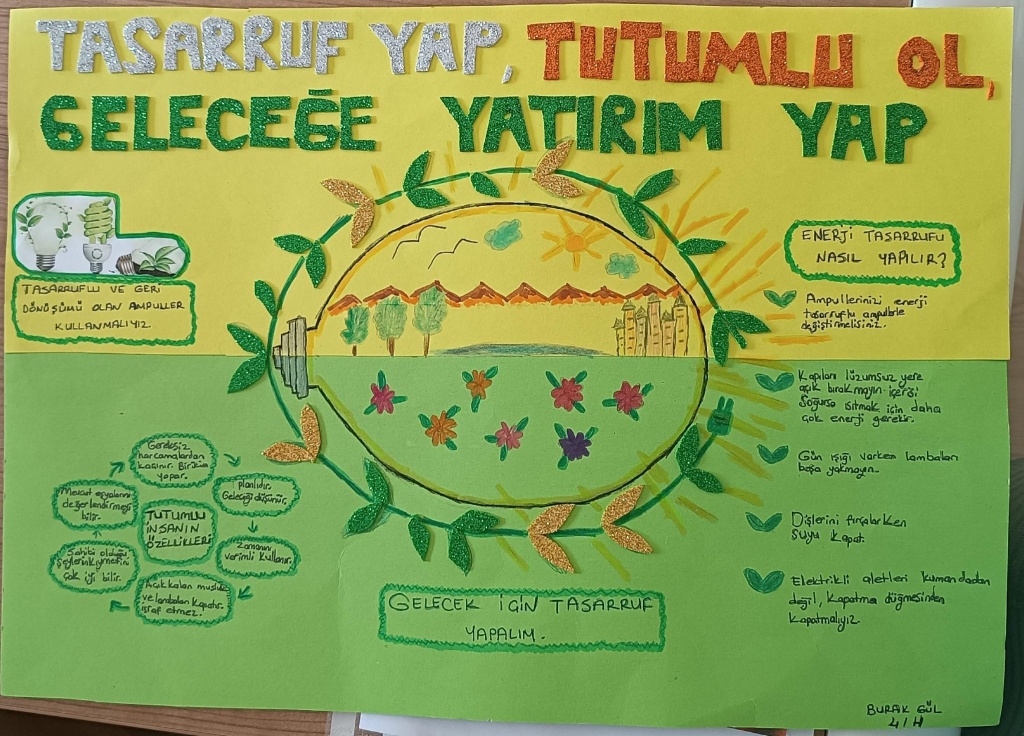 TASARRUF YAP, TUTUMLU OL,
GELECEĞE YATIRIM YAP
TASARRUFLU VE GERİ
DÖNÜŞÜMÜ OLAN AMPULLER
KULLANMALIYIZ.
ENERJİ TASARRUFU
NASIL YAPILIR?
Ampullerinizi enerji
tasarruflu ampullerle
değiştirmelisiniz.
Kapıları lüzumsuz yere
açık bırakmayın içeriği
Soğursa ısıtmak için daha
çok enerji gerekir.
Gün ışığı varken lambaları
boşa yakmayın.
Dişlerini fırçalarken
Suyu Kapat.
Elektrikli aletleri kumandadan
değil, Kapatma düğmesinden
Kapatmalıyız
TUTUMLU
İNSANIN
ÖZELLİKLERİ
Gereksiz
harcamalardan
kaçınır. Birikim
yapar.
planlıdır.
Geleceği düşünür.
Zamanını
verimli Kullanır.
Açık kalan musluk
ve lambaları Kapatır.
israf etmez.
Sahibi olduğu
şeylerin kıymetini
çok iyi bilir.
Mevcut eşyalarını
değerlendirmeyi
bilir.
GELECEK İÇİN TASARRUF
YAPALIM.
BURAK GÜL
4/H